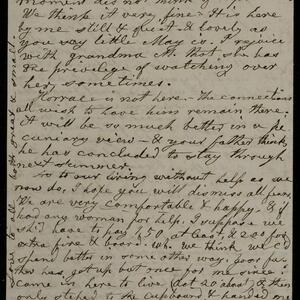 moment does not think
We think it very fine - It is here
by me still & quiet & lovely as
you say little May is. I rejoice
with grandma - that she has
the privilege of watching over
her, sometimes.
Horace is not here - The connections
all wish to have him remain there.
It will be so much better in a pe
cuniary view - & your father thinks
he has concluded to stay through
next summer.
As to our living without help as we
now do, I hope you will dismiss all fears
We are very comfortable & happy, & if
had any woman for help, I suppose we
shd have to pay 1,50, at least, & 2.00 for
extra fire & board. We think we cd
spend better in some other way. Your fa
ther has got up but once for me since I
came in here to live (Oct 20 about) & then
only stepd to the cupboard & handed me
love to all both great & small